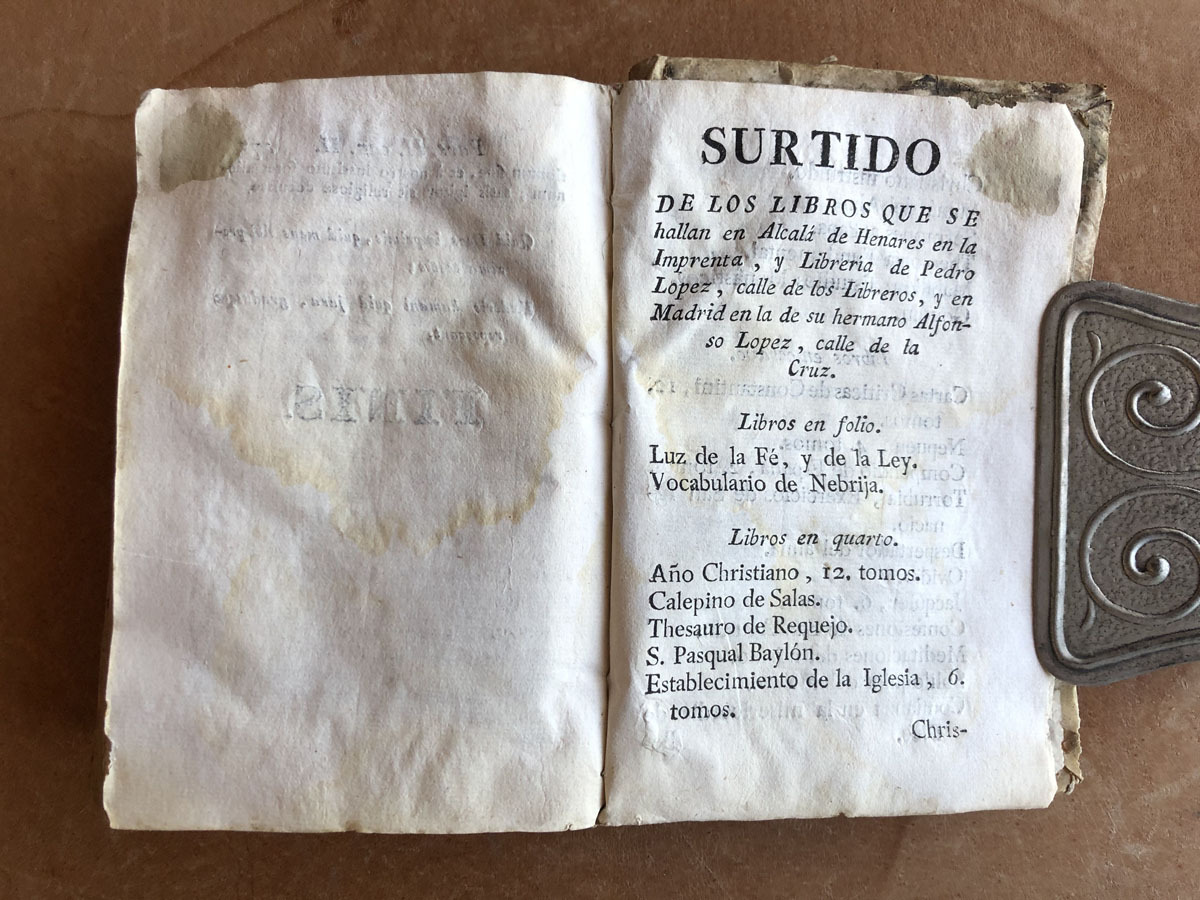 FINIS.
SURTIDO
DE LOS LIBROS QUE SE
hallan en Alcalá de Henares en la
Imprenta, y Libreria de Pedro
Lopez, calle de los Libreros, y en
Madrid en la de su hermano Alfon-
so Lopez, calle de la
Cruz.
Libros en folio.
Luz de la Fé, y de la Ley.
Vocabulario de Nebrija.
Libros en quarto.
Año Christiano, 12. tomos.
Calepino de Salas.
Thesauro de Requejo.
S. Pasqual Baylón.
Establecimiento de la Iglesia, 6.
tomos.
Chris-